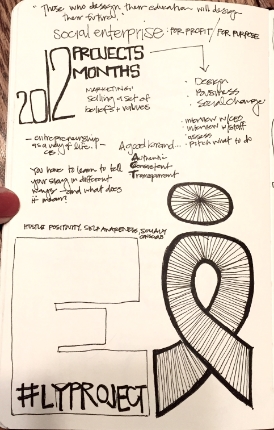 "Those who design their education will design
their future."
social enterprise: FOR PROFIT / FOR PURPOSE
2012
PROJECTS
MONTHS
MARKETING:
selling a set of
beliefs + values
· Design
· Business
· Social Change
· interview w/CEO
· interview w/staff
· assess
· pitch what to do
- entrepreneurship
as a way of life. -
A good brand...
Authentic
Consistent
Transparent
You have to learn to tell
your story in different
ways - and what does
it mean?
HUSTLE, POSITIVITY, SELF AWARENESS, SOCIALLY
#LYPROJECT